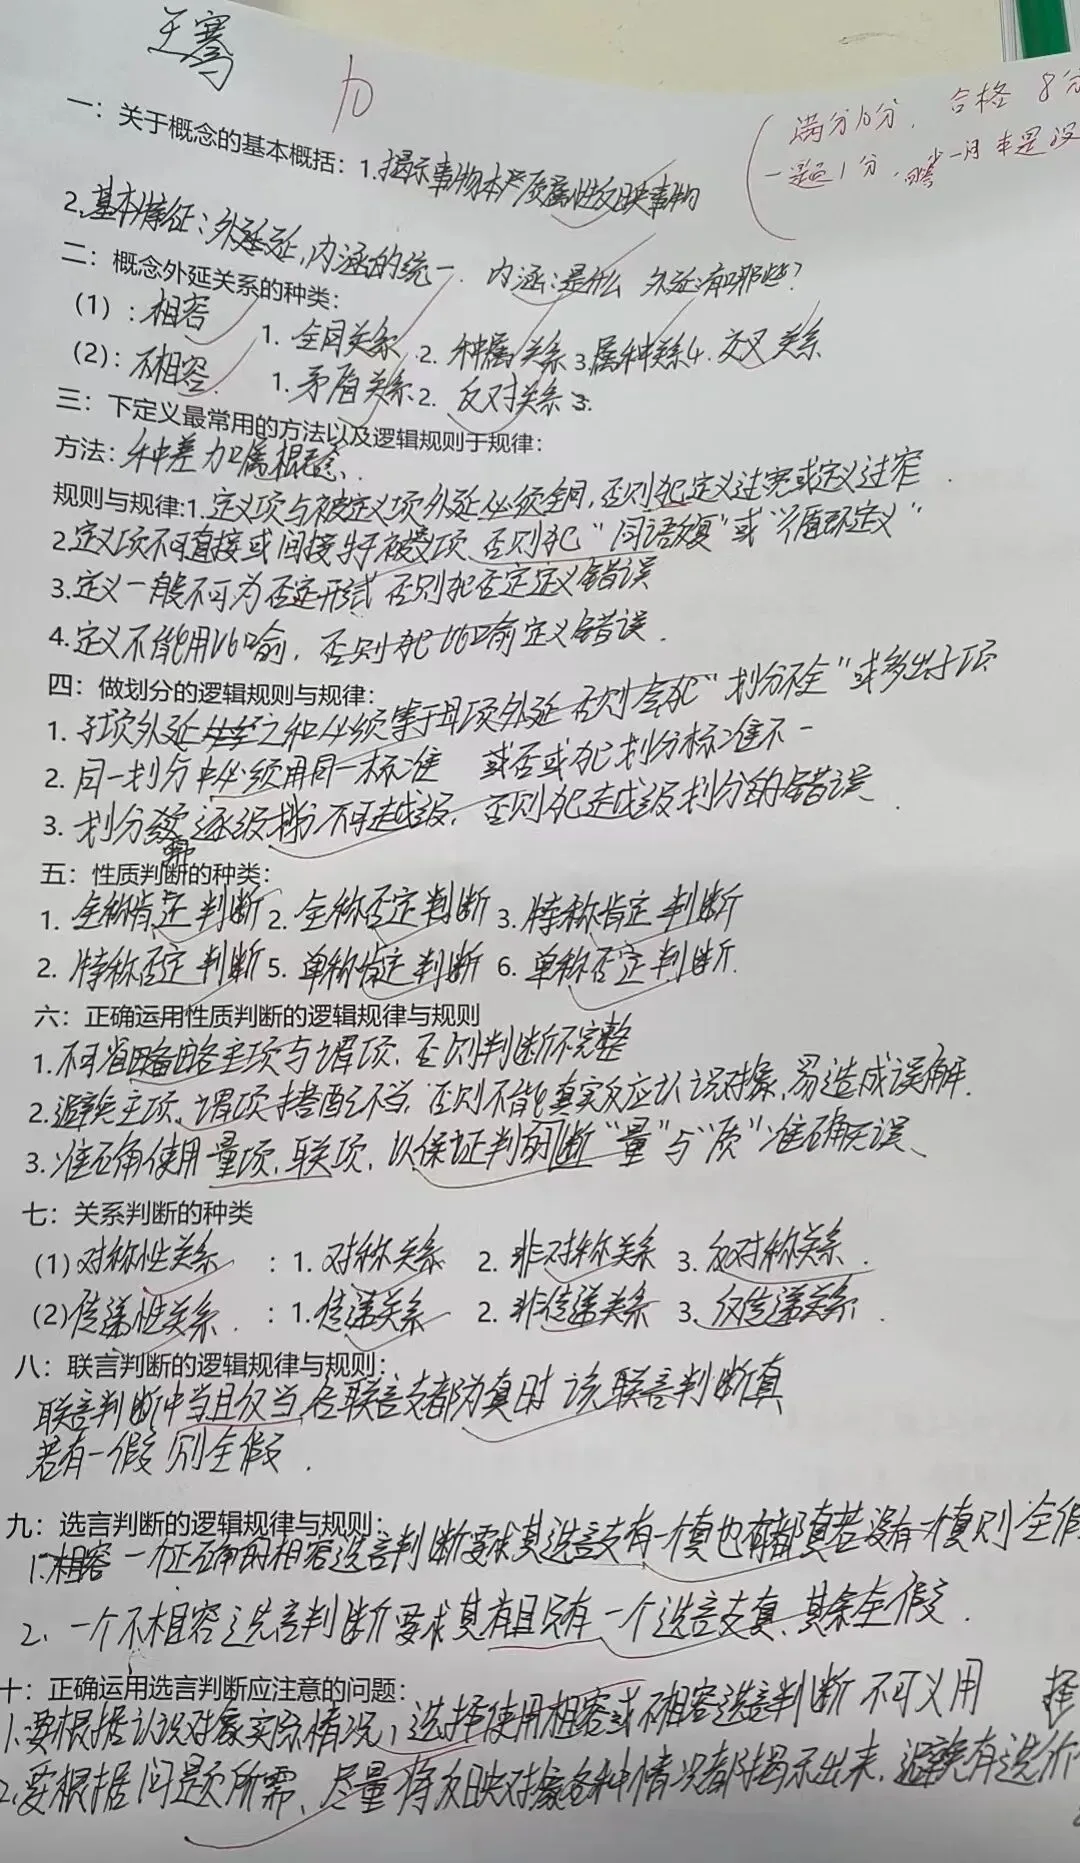 王骞
10
满分10分，合格 8分
一题1分，
一：关于概念的基本概括：1.揭示事物本质属性反映事物
2.基本特征：外延，内涵的统一．内涵：是什么 外延：有哪些？
二：概念外延关系的种类：
（1）：相容 1. 全同关系 2. 种属关系 3.属种关系 4. 交叉关系
（2）：不相容 1. 矛盾关系 2. 反对关系 3.
三：下定义最常用的方法以及逻辑规则于规律：
方法：种差加属概念、
规则与规律:1.定义项与被定义项外延必须全同，否则犯定义过宽或定义过窄．
2.定义项不可直接或间接 被定义项、否则犯“同语反复”或“循环定义”
3.定义一般不可为否定形式 否则犯否定定义错误
4.定义不能用比喻，否则犯比喻定义错误．
四：做划分的逻辑规则与规律：
1. 子项外延之和必须等于母项外延 否则会犯“划分不全”或多出子项
2. 同一划分中必须用同一标准 或否或犯划分标准不一
3. 划分 逐级 不可越级，否则犯越级划分的错误．
五：性质判断的种类：
1. 全称肯定判断 2. 全称否定判断 3. 特称肯定判断
2. 特称否定判断 5. 单称肯定判断 6. 单称否定判断.
六：正确运用性质判断的逻辑规律与规则
1.不可省略主项与谓项，否则判断不完整
2.避免主项、谓项搭配不当，否则不能真实反应认识对象，易造成误解.
3.准确使用量项，联项，以保证判断“量”与“质”准确无误、
七：关系判断的种类
(1)对称性关系 ：1. 对称关系 2. 非对称关系 3. 反对称关系．
(2)传递性关系． ：1. 传递关系 2. 非传递关系 3. 反传递关系．
八：联言判断的逻辑规律与规则：
联言判断中当且仅当，各联言支都为真时 该联言判断真
若有一假 则全假．
九：选言判断的逻辑规律与规则：
1.相容 一个正确的相容选言判断要求其选言支有一个真也可都真若没有一个真则全假
2、一个不相容选言判断要求其有且只有一个选言支真、其余全假．
十：正确运用选言判断应注意的问题：
1.要根据认识对象实际情况，选择使用相容或不相容选言判断 不可义用
2.要根据问题所需、尽量将反映对象各种情况都揭示出来，避免有选